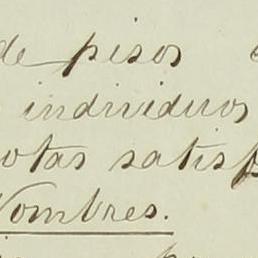 de pisos
individuos
otas satisf
Nombres.